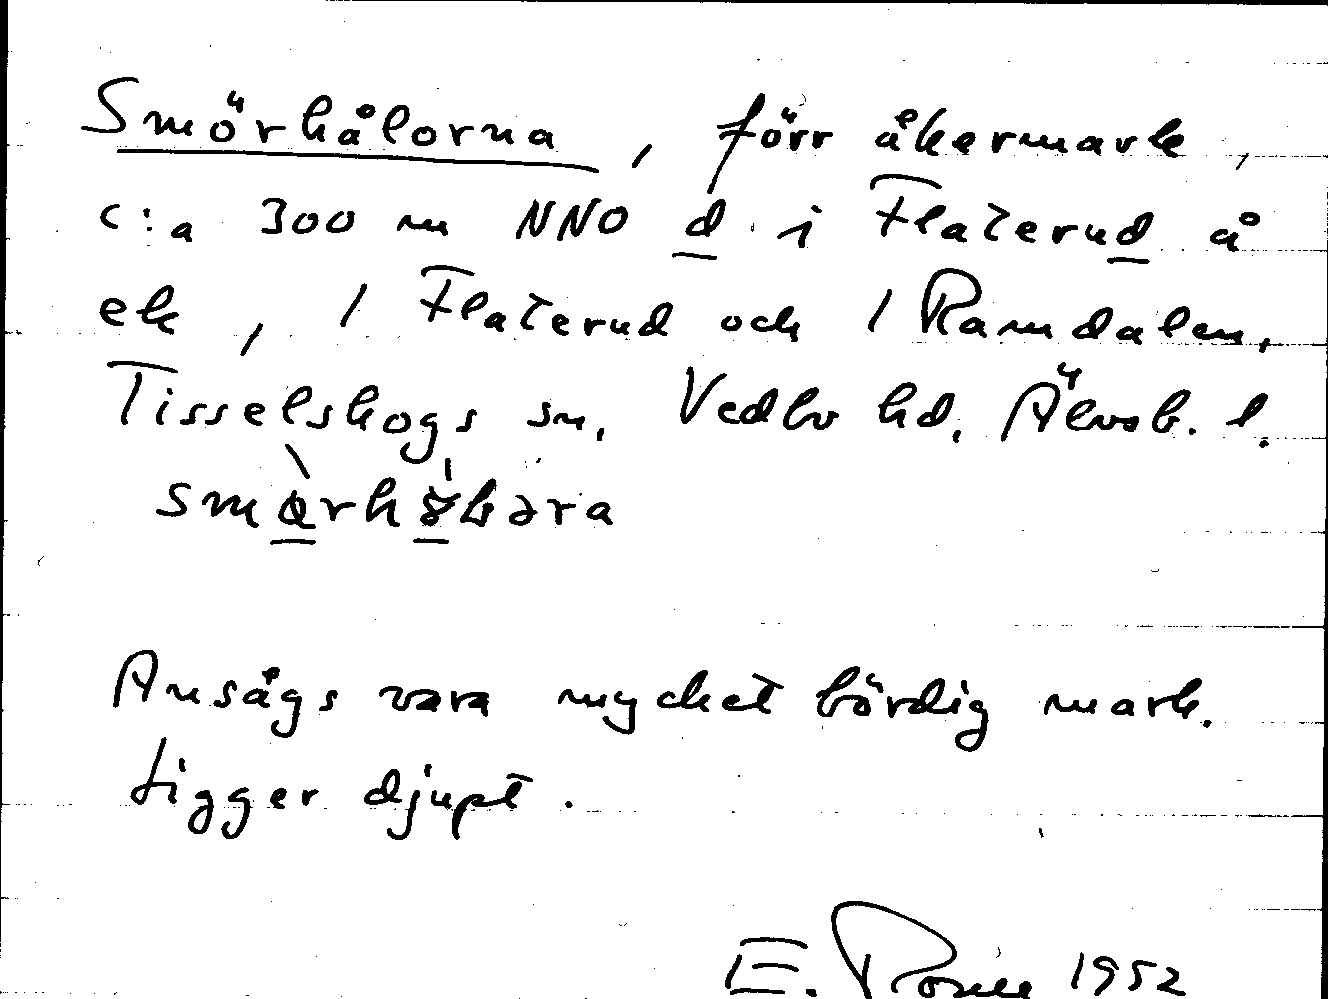 Smörhålorna, förr åkermark,
c:a 300 m NNO d i Flaterud å
ek, 1 Flaterud och 1 Ramdalen,
Tisselskogs sn, Vedbo hd, Älvsb. l.
Ansågs vara mycket bördig mark.
Ligger djupt.
E. 1952